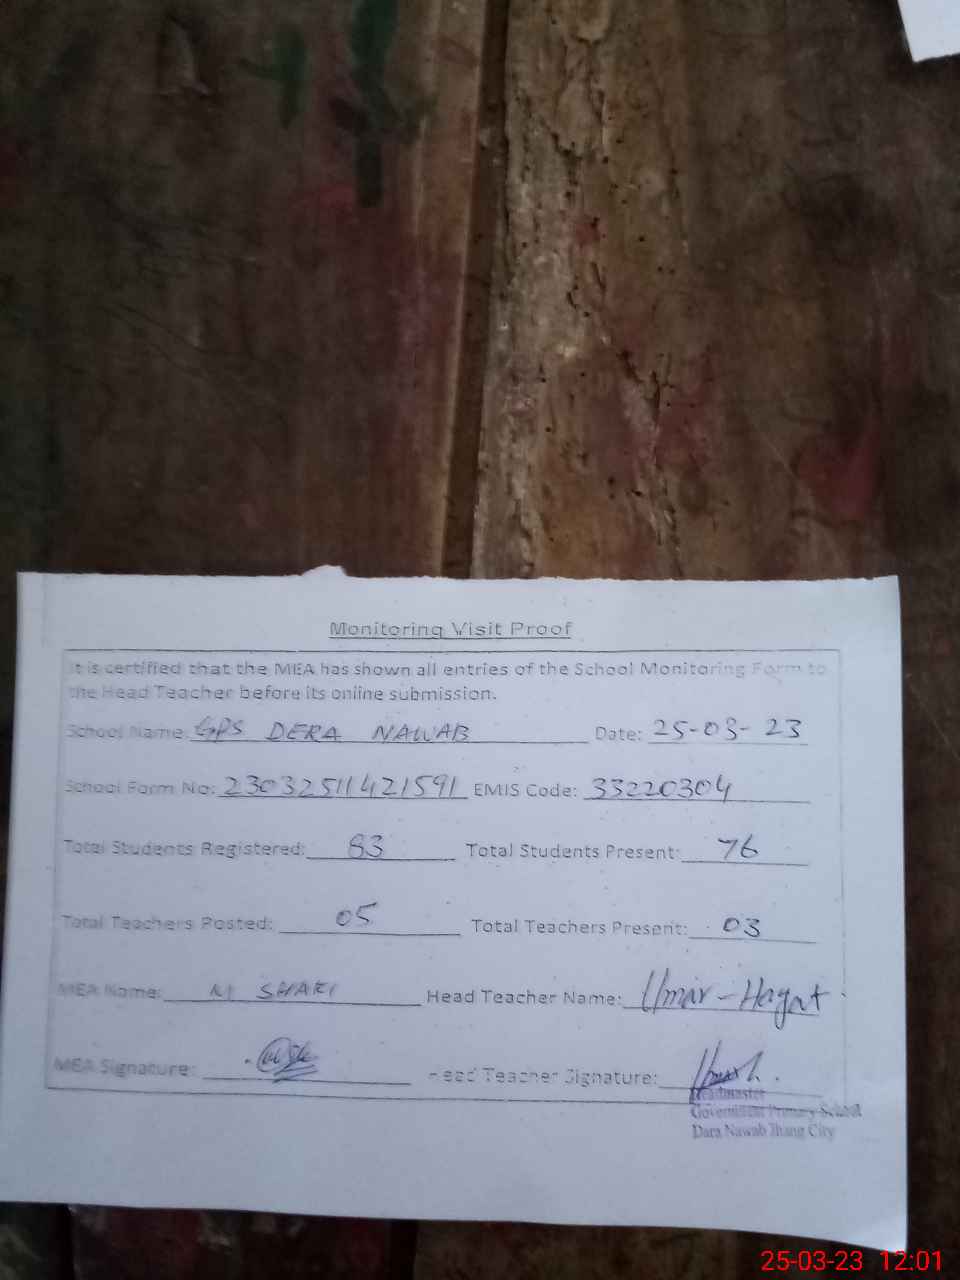 Monitoring Visit Proof
It is certified that the MEA has shown all entries of the School Monitoring Form to
the Head Teacher before its online submission.
School Name: GPS DERA NAWAB Date: 25-03-23
School Form No: 23032511421591 EMIS Code: 33220304
Total Students Registered: 83 Total Students Present: 76
Total Teachers Posted: 05 Total Teachers Present: 03
MEA Name: Head Teacher Name: Umar-Hayat
MEA Signature: Head Teacher Signature:
Headmaster
Government Primary School
Dara Nawab Jhang City
25-03-23 12:01